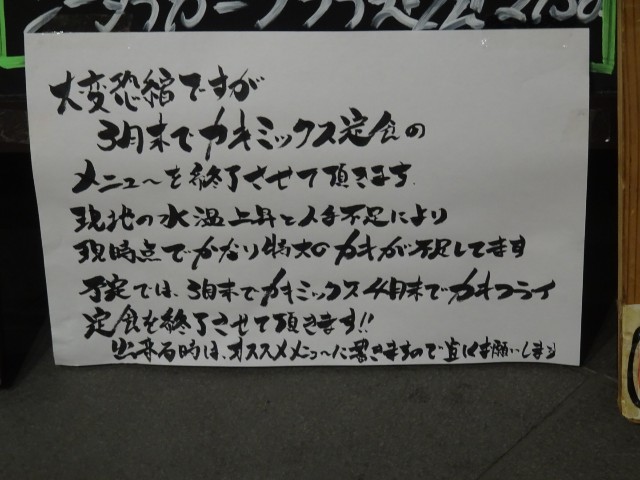 大変恐縮ですが
3月末でカキミックス定食の
メニューを終了させて頂きます
現地の水温上昇と人手不足により
現時点でかなり特大のカキが不足してます
予定では、3月末でカキミックス4月末でカキフライ
定食を終了させて頂きます!!
出来る時は、オススメメニューに書きますので宜しくお願いします